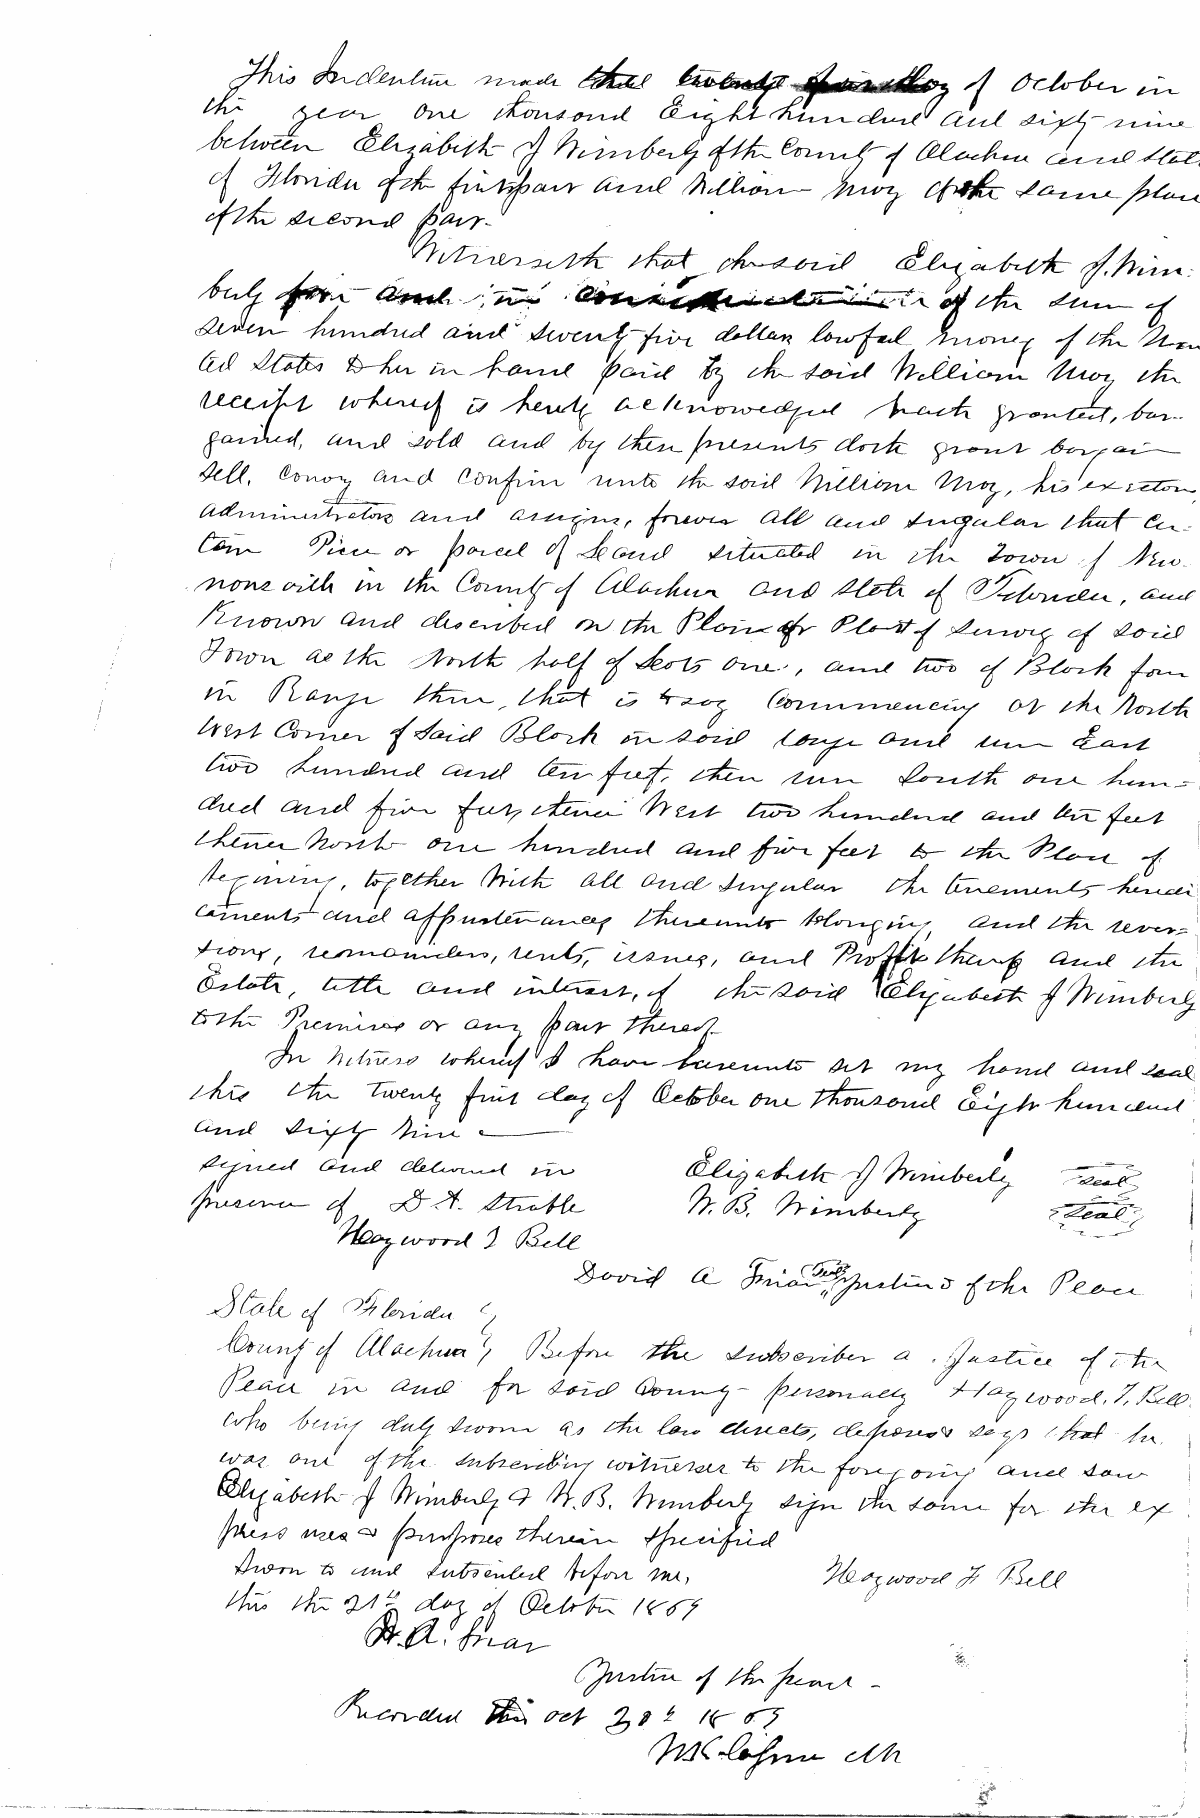 This Indenture made the twenty first day of October in
the year one thousand Eight hundred and sixty nine
between Elizabeth J Wimberly of the County of Alachua and State
of Florida of the first part and William May of the same place
of the second part.
Witnesseth that the said Elizabeth J. Wim-
berly for and in consideration of the sum of
seven hundred and twenty five dollars lawful money of the Uni
ted States to her in hand paid by the said William May the
receipt whereof is hereby acknowedged hath granted, bar-
gained, and sold and by these presents doth grant bargain
sell, convey and confirm unto the said William May, his exectors,
administrators and assigns, forever all and singular that cer-
tain Piece or parcel of Land situated in the Town of New-
nansville in the County of Alachua and State of Florida, and
Known and described on the Plan or Plat of Survey of said
Town as the North half of Lots one, and two of Block four
in Range three, that is to say Commencing at the North
West Corner of Said Block in said range and run East
two hundred and ten feet, then run South one hun-
dred and five feet, thence West two hundred and ten feet
thence North one hundred and five feet to the Place of
begining, together With all and Singular the tenements heredi
taments and appurtenances thereunto belonging, and the rever-
sions, remainders, rents, issues, and Profits thereof and the
Estate, title and interest, of the said Elizabeth J Wimberly
to the Premises or any part thereof.
In Witness whereof I have hereunto set my hand and seal
this the twenty first day of October one thousand Eight hundred
and sixty Nine
signed and delivered in Elizabeth J Wimberly seal
presence of D A. Struble W. B. Wimberly seal
Haywood F Bell
David A Friar Seal Justice of the Peace
State of Florida
County of Alachua Before the subscriber a Justice of the
Peace in and for said County personally Haywood. F. Bell
who being duly sworn as the law directs, deposes & says that he
was one of the subscribing witnesses to the foregoing and saw
Elizabeth J Wimberly & W. B. Wimberly sign the same for the ex
press uses & purposes therein specified
Sworn to and subscribed before me, Haywood F Bell
this the 21st day of October 1869
D. A. Friar
Justice of the peace
Recorded this Oct 30th 1869